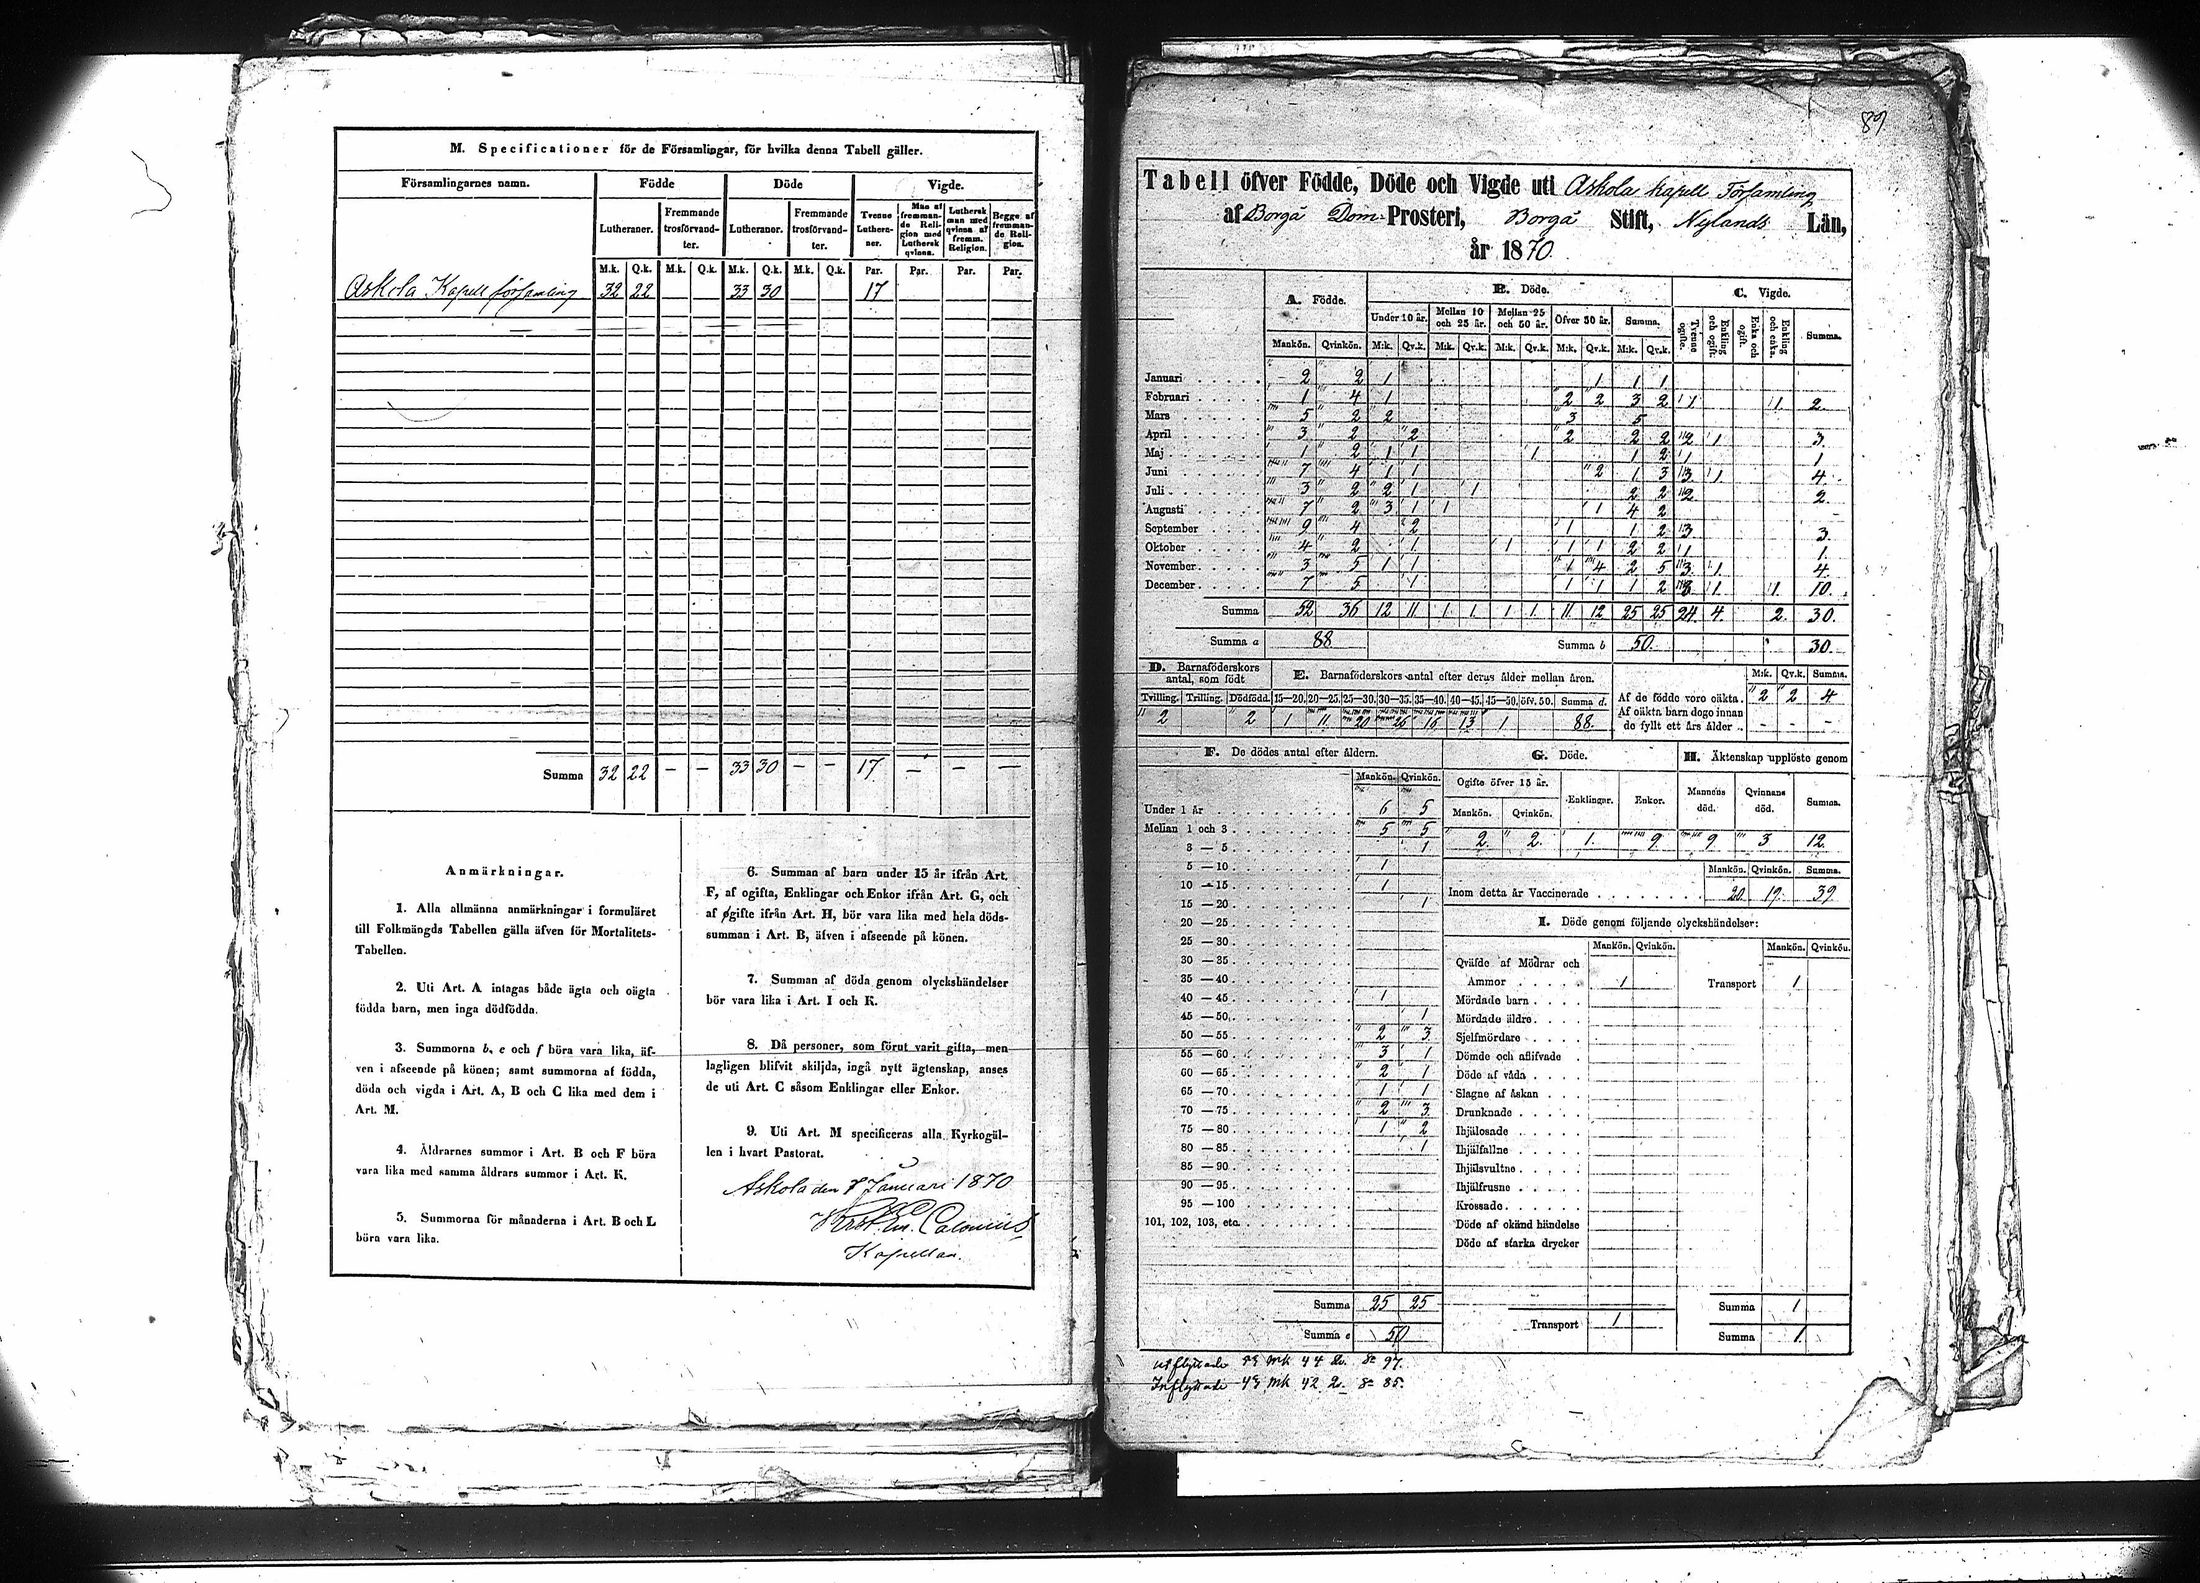 M. Specificationer för de Församlingar, för hvilka denna Tabell gäller.
Församlingarnes namn. Födde Döde Vigde.
Lutheraner. Fremmande trosförvandter. Lutheraner. Fremmande trosförvandter. Tvenne Lutheraner. Man af fremmande Religion med Luthersk qvinna. Luthersk man med qvinna af fremm. Religion. Begge af fremmande Religion.
M.k. Q.k. M.k. Q.k. M.k. Q.k. M.k. Q.k. Par. Par. Par. Par.
Askola Kapell församling 32 22 33 30 17
Summa 32 22 — — 33 30 — — 17 — — —
Anmärkningar.
1. Alla allmänna anmärkningar i formuläret
till Folkmängds Tabellen gälla äfven för Mortalitets-
Tabellen.
2. Uti Art. A intagas både ägta och oägta
födda barn, men inga dödfödda.
3. Summorna b, e och f böra vara lika, äf-
ven i afseende på könen; samt summorna af födda,
döda och vigda i Art. A, B och C lika med dem i
Art. M.
4. Åldrarnes summor i Art. B och F böra
vara lika med samma åldrars summor i Art. K.
5. Summorna för månaderna i Art. B och L
böra vara lika.
6. Summan af barn under 15 år ifrån Art.
F, af ogifta, Enklingar och Enkor ifrån Art. G, och
af gifte ifrån Art. H, bör vara lika med hela döds-
summan i Art. B, äfven i afseende på könen.
7. Summan af döda genom olyckshändelser
bör vara lika i Art. I och K.
8. Då personer, som förut varit gifta, men
lagligen blifvit skiljda, ingå nytt ägtenskap, anses
de uti Art. C såsom Enklingar eller Enkor.
9. Uti Art. M specificeras alla Kyrkogäl-
len i hvart Pastorat.
Askola den Januari 1870
Calonius
Kapellan.
89
Tabell öfver Födde, Döde och Vigde uti Askola kapell Församling
af Borgå Dom-Prosteri, Borgå Stift, Nylands Län,
år 1870.
A. Födde. B. Döde. C. Vigde.
Under 10 år. Mellan 10 och 25 år. Mellan 25 och 50 år. Öfver 50 år. Summa. Tvenne ogifte. Enkling och ogift. Enka och ogift. Enkling och enka. Summa.
Mankön. Qvinkön. M:k. Qv.k. M:k. Qv.k. M:k. Qv.k. M:k. Qv.k. M:k. Qv.k.
Januari 2 2 1 1 1 1
Februari 1 4 1 2 2 3 2 1 1 2
Mars 5 2 2 3 5
April 3 2 2 2 2 2 2 1 3
Maj 1 2 1 1 1 1 2 1 1
Juni 7 4 1 1 2 1 3 3 1 4
Juli 3 2 2 1 1 2 2 2 2
Augusti 7 2 3 1 1 1 4 2
September 9 4 2 1 1 2 3 3
Oktober 4 2 1 1 1 1 2 2 1 1
November 3 5 1 1 1 4 2 5 3 1 4
December 7 5 1 1 1 1 2 8 1 1 10
Summa 52 36 12 11 1 1 1 1 11 12 25 25 24 4 2 30
Summa a 88 Summa b 50 30
D. Barnaföderskors antal, som födt
Tvilling. Trilling. Dödfödd.
2 2
E. Barnaföderskors antal efter deras ålder mellan åren.
15—20. 20—25. 25—30. 30—35. 35—40. 40—45. 45—50. öfv. 50. Summa d.
1 11 20 26 16 13 1 88
M:k. Qv.k. Summa.
Af de födde voro oäkta. 2 2 4
Af oäkta barn dogo innan
de fyllt ett års ålder — — —
F. De dödes antal efter åldern.
Mankön. Qvinkön.
Under 1 år 6 5
Mellan 1 och 3 5 5
3 — 5 1
5 — 10 1
10 — 15 1
15 — 20 1
20 — 25
25 — 30
30 — 35
35 — 40
40 — 45 1
45 — 50 1
50 — 55 2 3
55 — 60 3 1
60 — 65 2 1
65 — 70 1 1
70 — 75 2 3
75 — 80 1 2
80 — 85 1
85 — 90
90 — 95
95 — 100
101, 102, 103, etc.
Summa 25 25
Summa e 50
G. Döde.
Ogifte öfver 15 år. Enklingar. Enkor.
Mankön. Qvinkön.
2 2 1 9
H. Äktenskap upplöste genom
Mannens död. Qvinnans död. Summa.
9 3 12
Mankön. Qvinkön. Summa.
Inom detta år Vaccinerade 20 19 39
I. Döde genom följande olyckshändelser:
Mankön. Qvinkön. Mankön. Qvinkön.
Qväfde af Mödrar och
Ammor 1 Transport 1
Mördade barn
Mördade äldre
Sjelfmördare
Dömde och aflifvade
Döde af våda
Slagne af åskan
Drunknade
Ihjälosade
Ihjälfallne
Ihjälsvultne
Ihjälfrusne
Krossade
Döde af okänd händelse
Döde af starka drycker
Transport 1
Summa 1
Summa 1
utflyttade mk 44 97.
Inflyttade 43 mk 42 85.